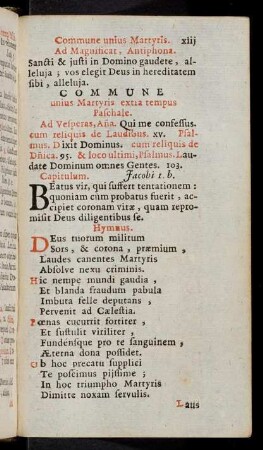 Commune unius Martyris. xlij
Ad Magnificat, Antiphona.
Sancti & justi in Domino gaudere, al-
leluja ; vos elegit Deus in hereditatem
sibi, alleluja.
COMMUNE
unius Martyris extra tempus
Paschale.
Ad Vesperas, Aña. Qui me confessus.
cum reliquis de Laudibus. xv. Psal-
mus. Dixit Dominus. cum reliquis de
Dñica. 95. & loco ultimi, Psalmus. Lau-
date Dominum omnes Gentes. 103.
Capitulum. Jacobi 1. b.
BEatus vir, qui suffert tentationem :
quoniam cum probatus fuerit, ac-
cipiet coronam vitæ, quam repro-
misit Deus diligentibus se.
Hymnus.
DEus tuorum militum
Sors, & corona, præmium,
Laudes canentes Martyris
Absolve nexu criminis.
Hic nempe mundi gaudia,
Et blanda fraudum pabula
Imbuta felle deputans,
Pervenit ad Cælestia.
Pœnas cucurrit fortiter,
Et sustulit viriliter,
Fundensque pro te sanguinem,
Æterna dona possidet.
Ob hoc precatu supplici
Te poscimus piissime ;
In hoc triumpho Martyris
Dimitte noxam servulis.
Laus